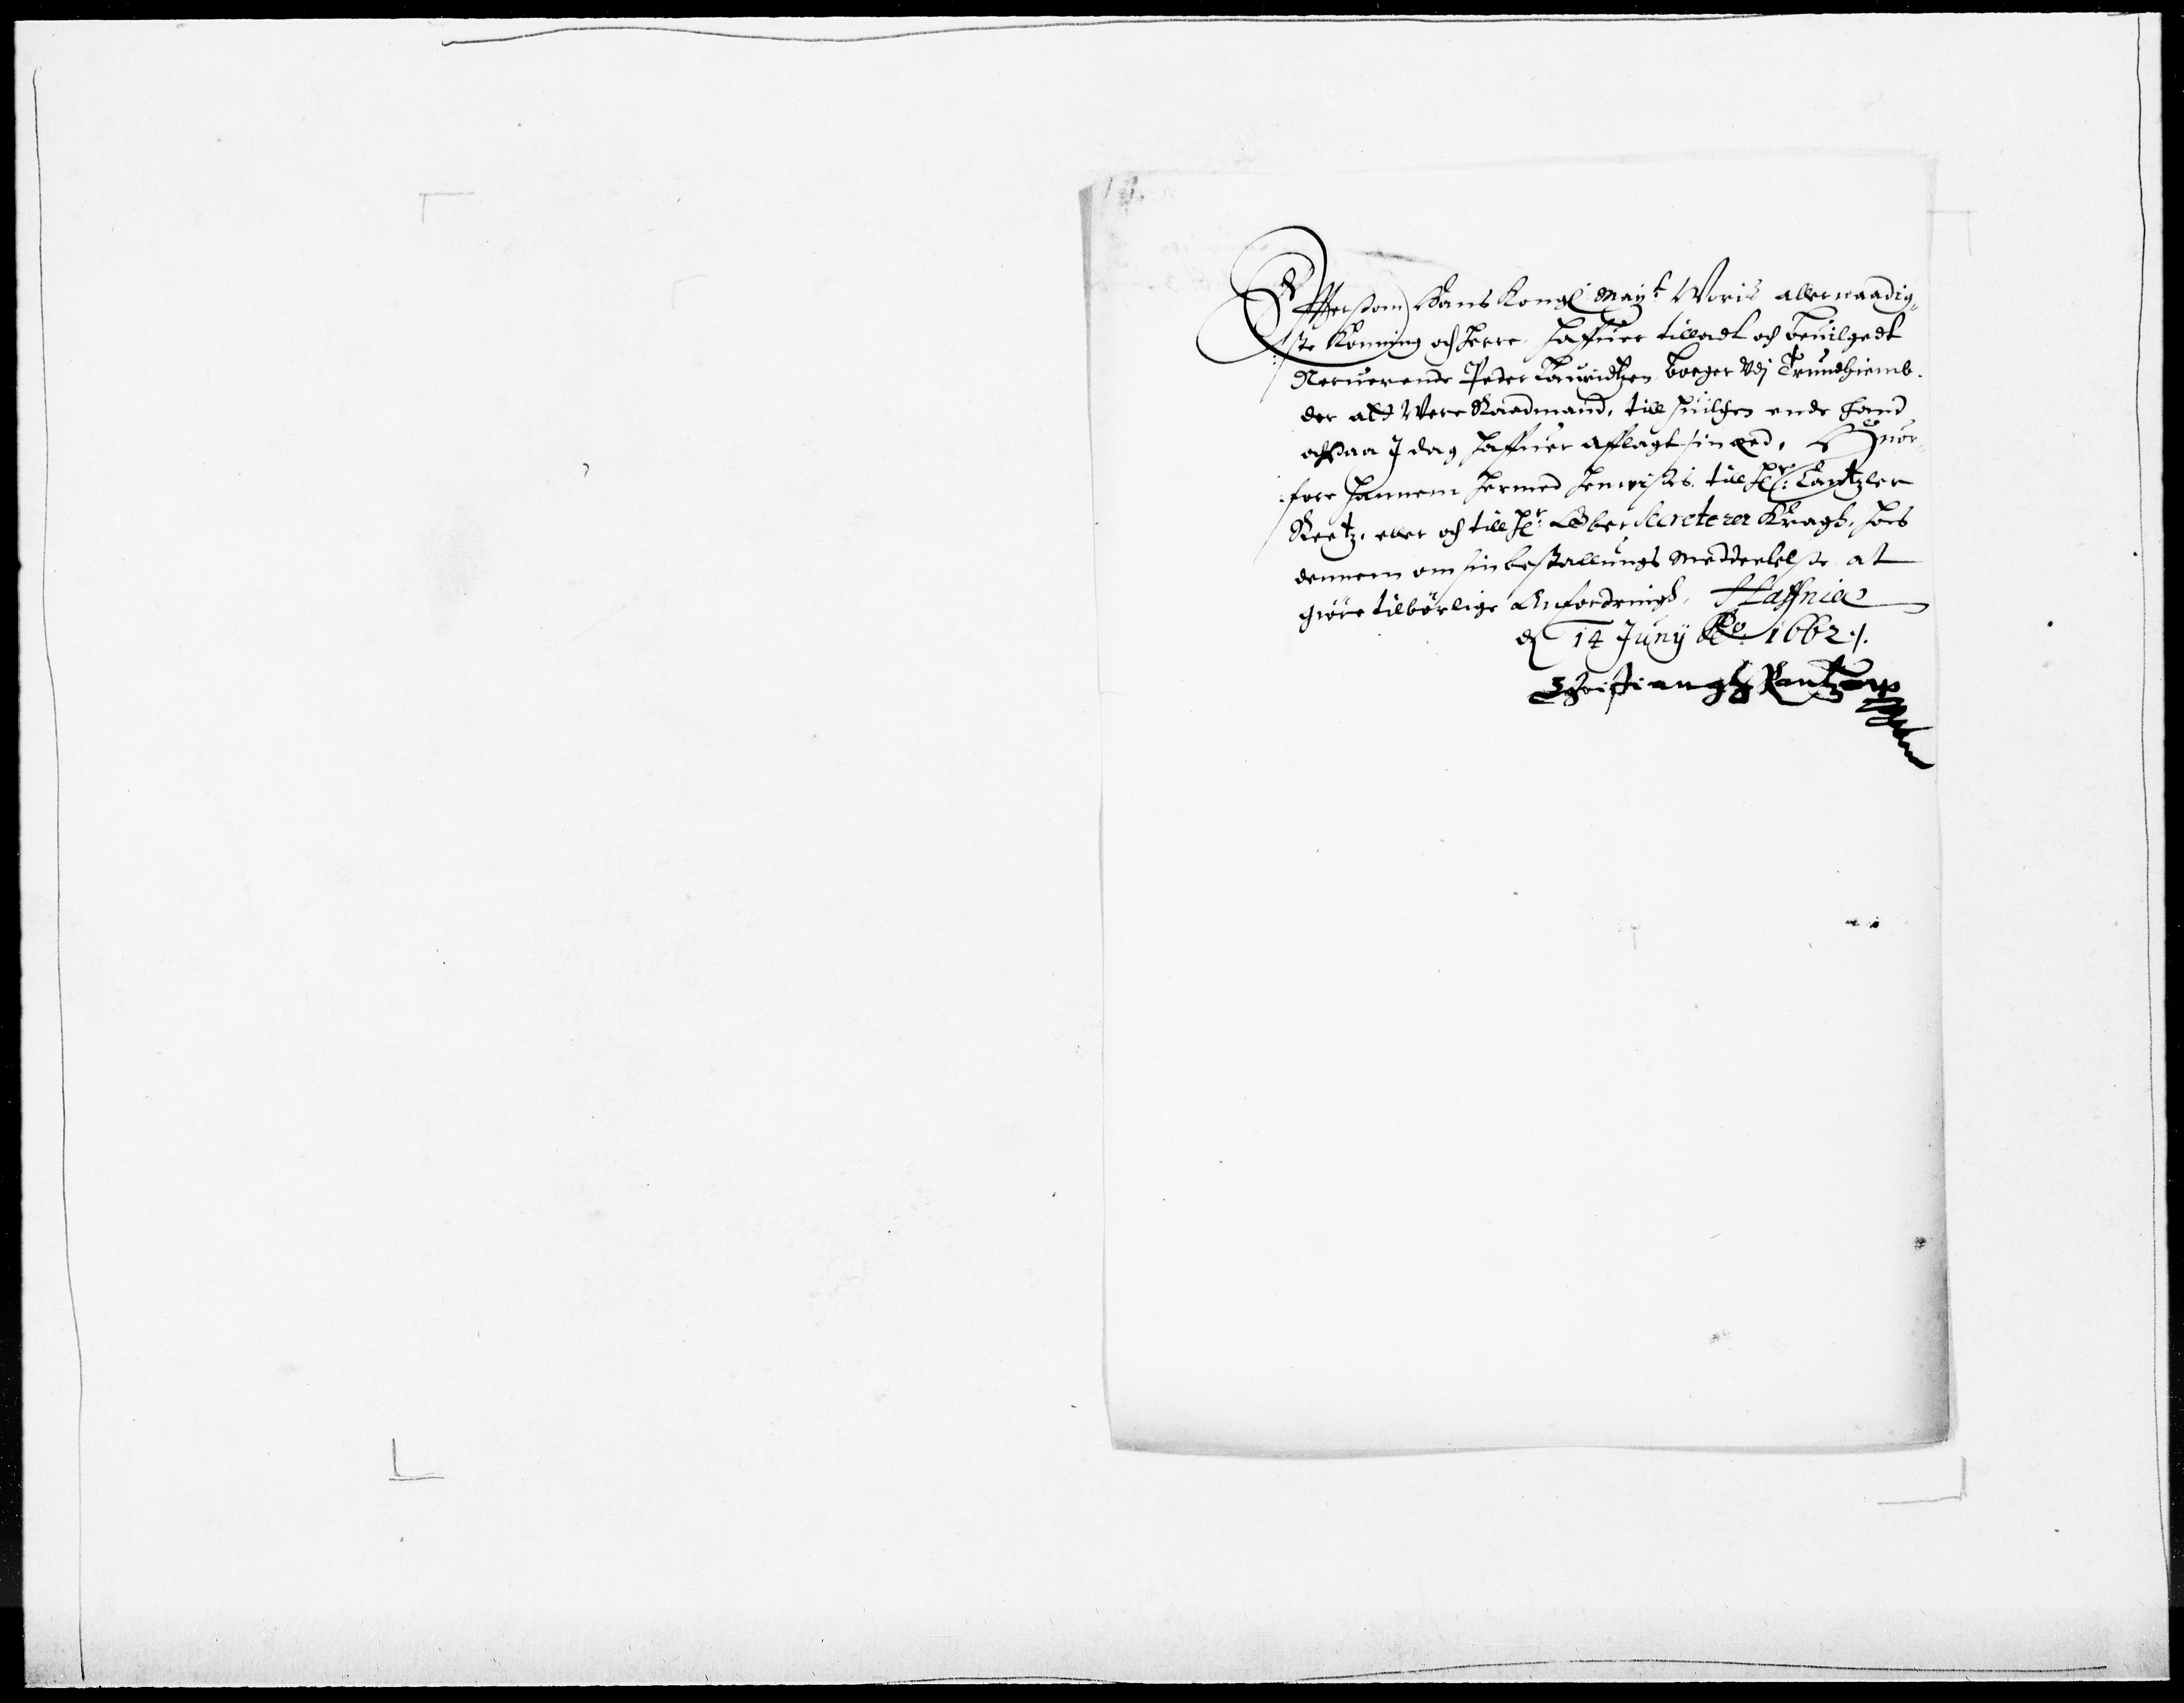 Effthersom Hans Kongl: May:t Woris allernaadig-
ste Konning och Herre haffuer tilladt och beuilgedt
Neruerende Peder Lauridtzen borger Vdj Trundhiemb.
der att Were Raadmand, till huilchen ende hand
och Paa J dag haffuer afflagt sin eed, Huor-
fore hannem hermed henvises till Hr: Cantzler
Reetz, eller och till Hr: Ober Secreterer Kragh, hos
dennem om sin bestallungs meddeelelse at
giöre tilbörlige Anfordringh, Haffnia
d 14 Junij Ao: 1662 ./.
Christian gh Rantzow